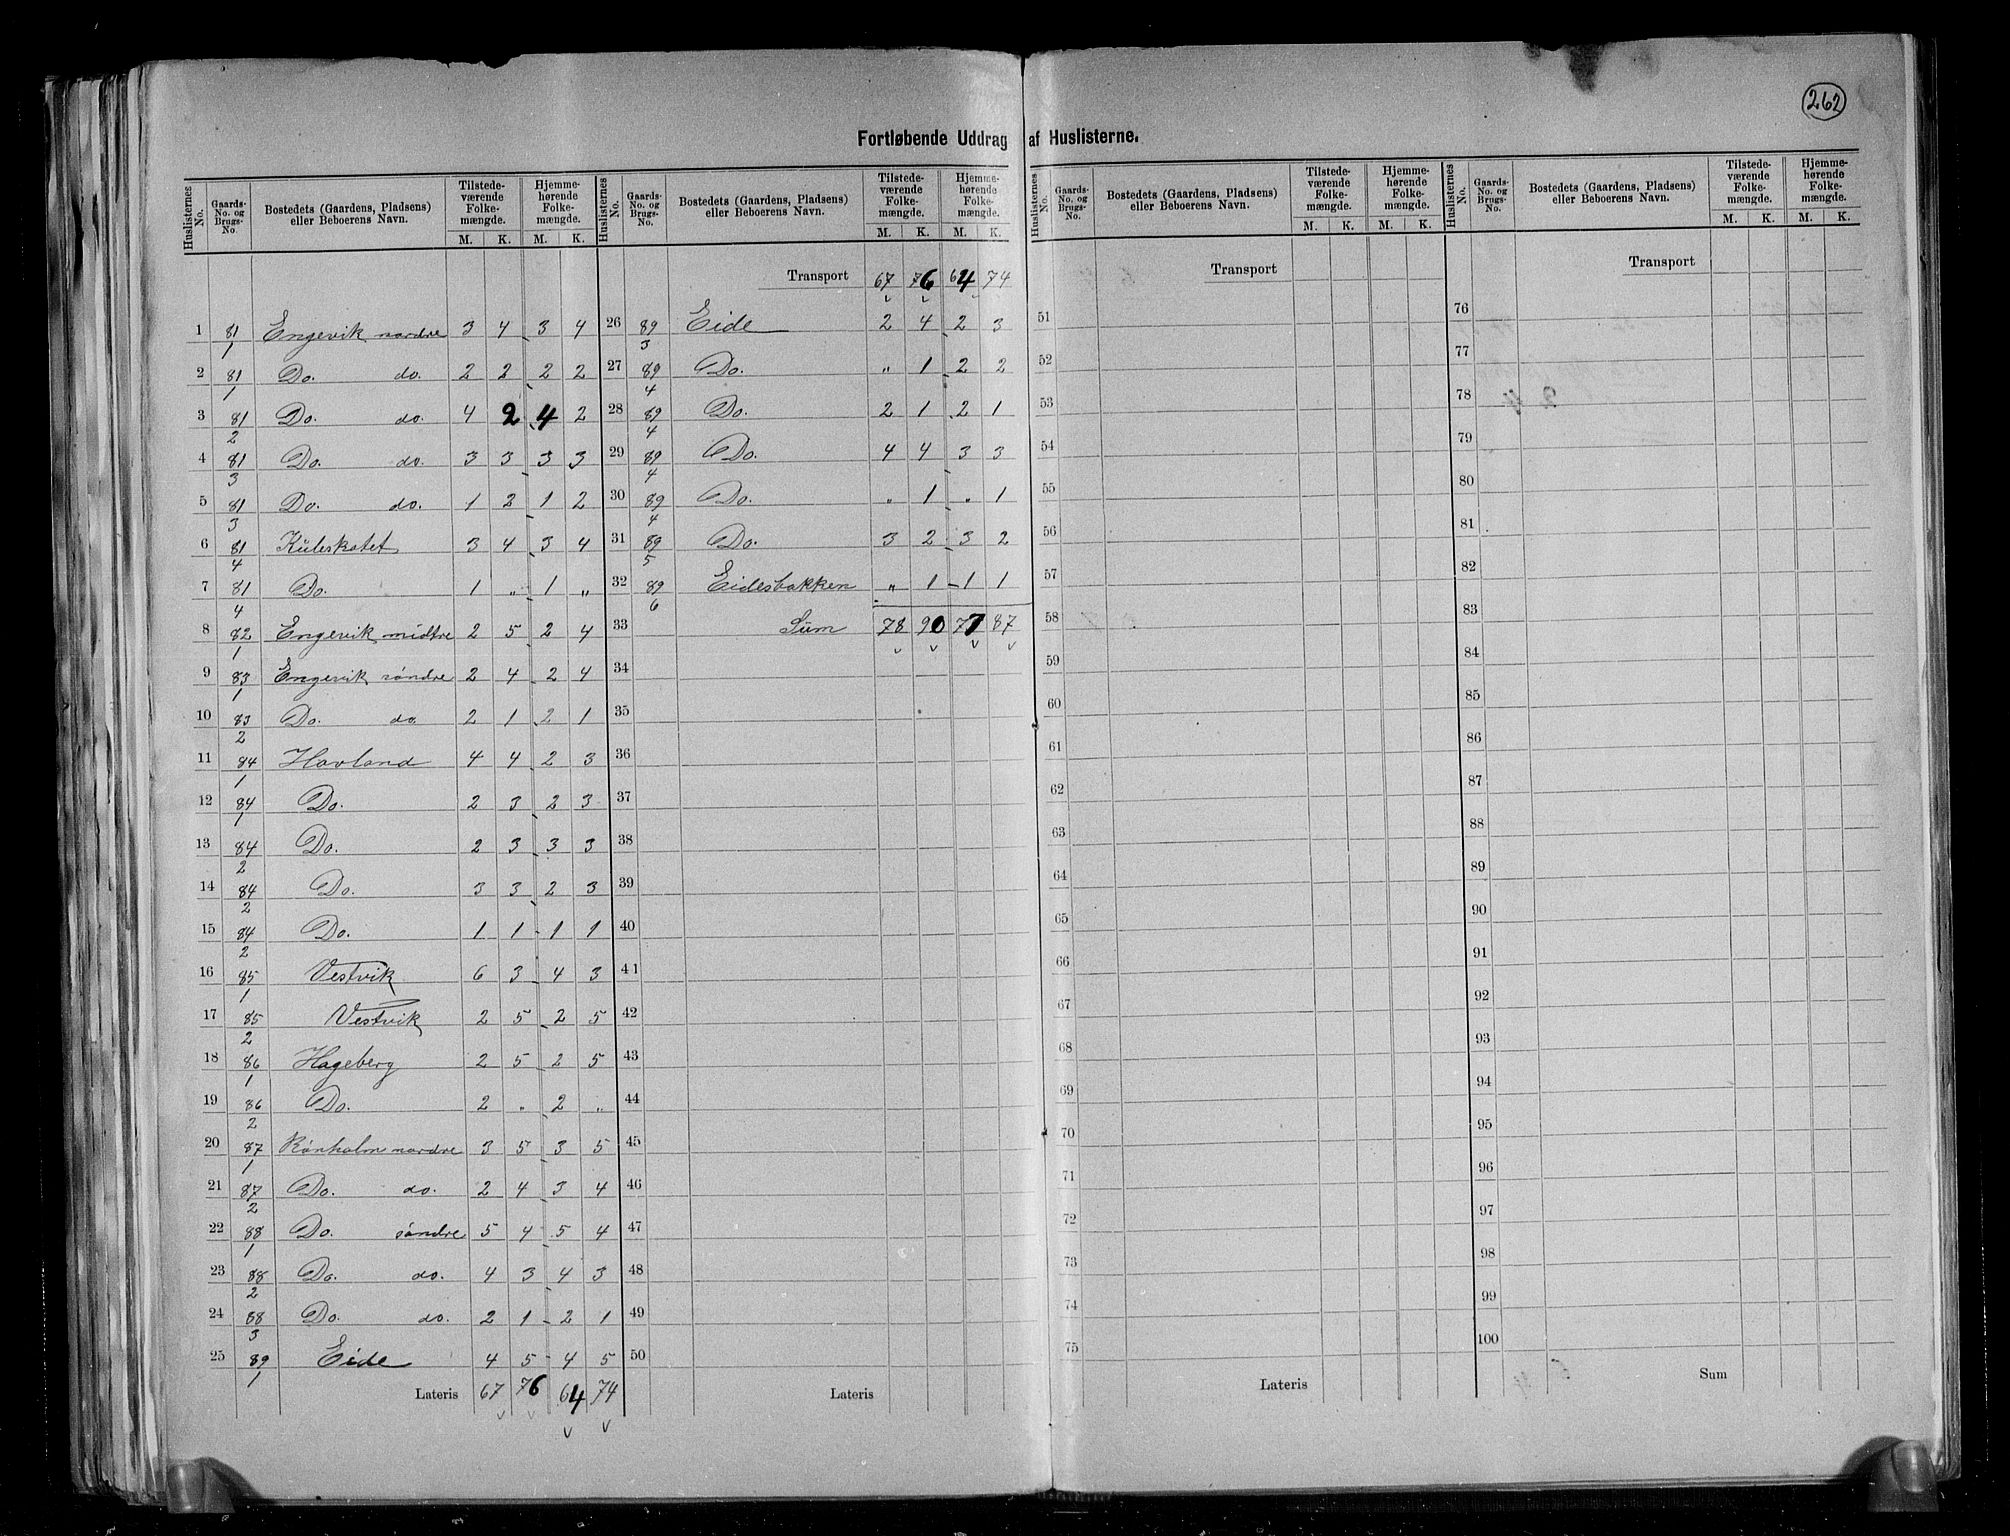 262
Fortløbende Uddrag af Huslisterne.
Huslisternes No. | Gaards-No. og Brugs-No. | Bostedets (Gaardens, Pladsens) eller Beboerens Navn. | Tilstedeværende Folkemængde. M. K. | Hjemmehørende Folkemængde. M. K.
Huslisternes No. | Gaards-No. og Brugs-No. | Bostedets (Gaardens, Pladsens) eller Beboerens Navn. | Tilstedeværende Folkemængde. M. K. | Hjemmehørende Folkemængde. M. K.
1 81/1 Engevik nordre 3 4 3 4
2 81/1 Do. do. 2 2 2 2
3 81/2 Do. do. 4 2 4 2
4 81/3 Do. do. 3 3 3 3
5 81/3 Do. do. 1 2 1 2
6 81/4 Kuleskatet 3 4 3 4
7 81/4 Do. 1 „ 1 „
8 82/1 Engevik midtre 2 5 2 4
9 83/1 Engevik søndre 2 4 2 4
10 83/2 Do. do. 2 1 2 1
11 84/1 Havland 4 4 2 3
12 84/1 Do. 2 3 2 3
13 84/2 Do. 2 3 3 3
14 84/2 Do. 3 3 2 3
15 84/2 Do. 1 1 1 1
16 85/1 Vestvik 6 3 4 3
17 85/2 Vestvik 2 5 2 5
18 86/1 Hageberg 2 5 2 5
19 86/2 Do. 2 „ 2 „
20 87/1 Rønholm nordre 3 5 3 5
21 87/2 Do. do. 2 4 3 4
22 88/1 Do. søndre 5 4 5 4
23 88/2 Do. do. 4 3 4 3
24 88/3 Do. do. 2 1 2 1
25 89/1 Eide 4 5 4 5
Lateris 67 76 64 74
Transport 67 76 64 74
26 89/3 Eide 2 4 2 3
27 89/4 Do. „ 1 2 2
28 89/4 Do. 2 1 2 1
29 89/4 Do. 4 4 3 3
30 89/4 Do. „ 1 „ 1
31 89/5 Do. 3 2 3 2
32 89/6 Eidesbakken „ 1 1 1
33 Sum 78 90 77 87
34
35
36
37
38
39
40
41
42
43
44
45
46
47
48
49
50
Lateris
Huslisternes No. | Gaards-No. og Brugs-No. | Bostedets (Gaardens, Pladsens) eller Beboerens Navn. | Tilstedeværende Folkemængde. M. K. | Hjemmehørende Folkemængde. M. K.
Transport
51
52
53
54
55
56
57
58
59
60
61
62
63
64
65
66
67
68
69
70
71
72
73
74
75
Lateris
Huslisternes No. | Gaards-No. og Brugs-No. | Bostedets (Gaardens, Pladsens) eller Beboerens Navn. | Tilstedeværende Folkemængde. M. K. | Hjemmehørende Folkemængde. M. K.
Transport
76
77
78
79
80
81
82
83
84
85
86
87
88
89
90
91
92
93
94
95
96
97
98
99
100
Sum